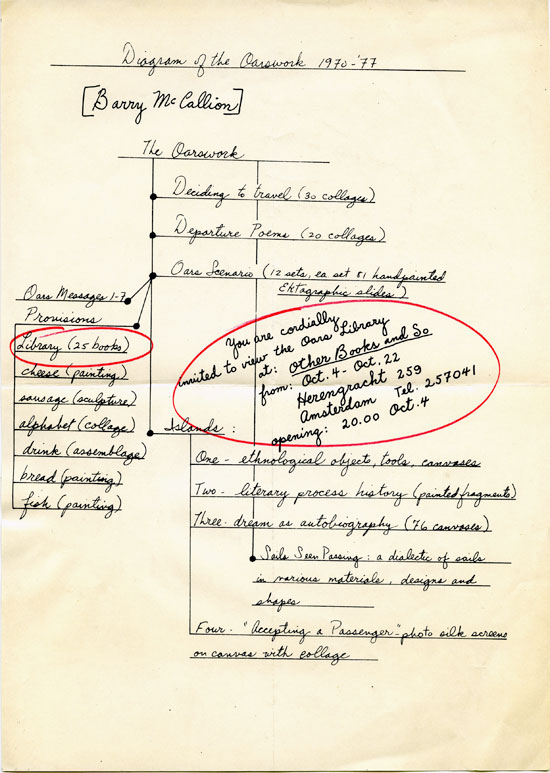 Diagram of the Oarswork 1970-'77
[Barry McCallion]
The Oarswork
Deciding to travel (30 collages)
Departure Poems (20 collages)
Oars Scenario (12 sets, ea set 81 handpainted
Ektagraphic slides)
Oars Messages 1-7
Provisions
Library (25 books)
cheese (painting)
sausage (sculpture)
alphabet (collage)
drink (assemblage)
bread (painting)
fish (painting)
You are cordially
invited to view the Oars Library
at: Other Books and So
from: Oct. 4 - Oct. 22
Herengracht 259
Amsterdam Tel. 257041
opening: 20.00 Oct. 4
Islands:
One - ethnological objects, tools, canvases
Two - literary process history (painted fragments)
Three - dream as autobiography (76 canvases)
Sails Seen Passing: a dialectic of sails
in various materials, designs and
shapes
Four - "Accepting a Passenger" photo silk screens
on canvas with collage